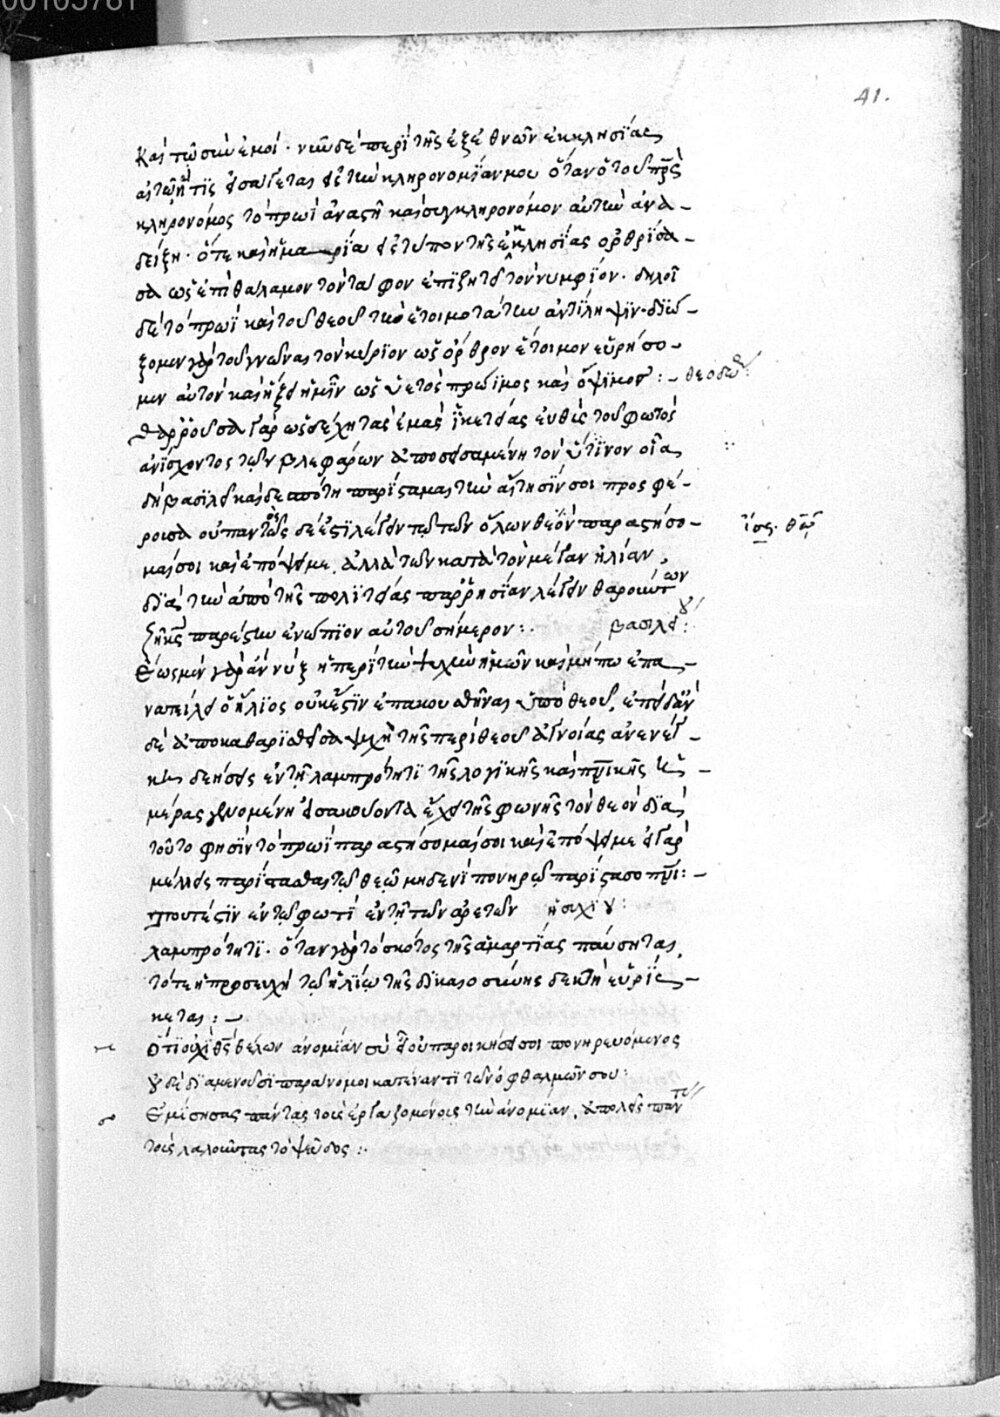 00105781
41.
καὶ τῷ σὺν ἐμοί · νῦν δὲ περὶ τῆς ἐξ ἐθνῶν ἐκκλησίας
κληρονόμος τὸ πρωῒ ἀναστῇ καὶ συγκληρονόμον αὐτὴν ἀνα –
δείξῃ · ὅτε καὶ ἡ μαρία εἰς τύπον τῆς ἐκκλησίας ὀρθρίσα –
σα ὡς ἐπὶ θάλαμον τὸν τάφον ἐπιζητεῖ τὸν νυμφίον · δηλοῖ
δὲ τὸ πρωῒ καὶ τοῦ θεοῦ τὴν ἑτοιμοτάτην ἀντίληψιν · διώ –
ξομεν γὰρ τοῦ γνῶναι τὸν κύριον ὡς ὄρθρον ἕτοιμον εὑρήσο –
μεν αὐτὸν καὶ ἥξει ἡμῖν ὡς ὑετὸς πρώϊμος καὶ ὄψιμος : – θεοδώ :
θαρροῦσα γὰρ ὡς δέχῃ τὰς ἐμὰς ἱκετείας εὐθὺς τοῦ φωτὸς
ἀνίσχοντος τῶν βλεφάρων ἀποσεισαμένη τὸν ὕπνον οἷα
δὴ βασιλεῖ καὶ δεσπότῃ παρίσταμαι τὴν αἴτησίν σοι προσφέ –
ρουσα οὐ παντὸς δέ ἐστι λέγειν τῷ τῶν ὅλων θεῷ παραστήσο –
μαί σοι καὶ ἐπόψει με, ἀλλὰ τῶν κατὰ τὸν μέγαν ἠλίαν
διὰ τὴν ἀπὸ τῆς πολιτείας παρρησίαν λέγειν θαρρούντων
ζῇ κς παρέστην ἐνώπιον αὐτοῦ σήμερον : βασιλεί :
ἕως μὲν γὰρ ἂν νὺξ ᾖ περὶ τὴν ψυχὴν ἡμῶν καὶ μήπω ἐπα –
νατείλῃ ὁ ἥλιος οὐκ ἔστιν ἐπακουσθῆναι ὑπὸ θεοῦ, ἐπειδὰν
δὲ ἀποκαθαρισθεῖσα ψυχὴ τῆς περὶ θεοῦ ἀγνοίας ἀνενέγ –
κῃ δεήσεις ἐν τῇ λαμπρότητι τῆς λογικῆς καὶ πνικῆς ἡ –
μέρας γενομένη εἰσακούοντα ἔχει τῆς φωνῆς τὸν θεόν διὰ
τοῦτο φησὶν τὸ πρωῒ παραστήσομαί σοι καὶ ἐπόψει με εἰ γὰρ
μέλλεις παρίστασθαι τῷ θεῷ μηδενὶ πονηρῷ παρίστασο πνι : –
τουτέστιν ἐν τῷ φωτὶ ἐν τῇ τῶν ἀρετῶν ἡσυχίου :
λαμπρότητι · ὅταν γὰρ τὸ σκότος τῆς ἁμαρτίας παύσηται,
τότε ἡ προσευχὴ τῷ ἡλίῳ τῆς δικαιοσύνης δεκτὴ εὑρίσ –
κεται : –
ὅτι οὐχὶ θς θέλων ἀνομίαν σὺ εἶ οὐ παροικήσει σοι πονηρευόμενος
οὐδὲ διαμενοῦσι παράνομοι κατέναντι τῶν ὀφθαλμῶν σου :
ἐμίσησας πάντας τοὺς ἐργαζομένους τὴν ἀνομίαν, ἀπολεῖς πάντ
τοὺς λαλοῦντας τὸ ψεῦδος :